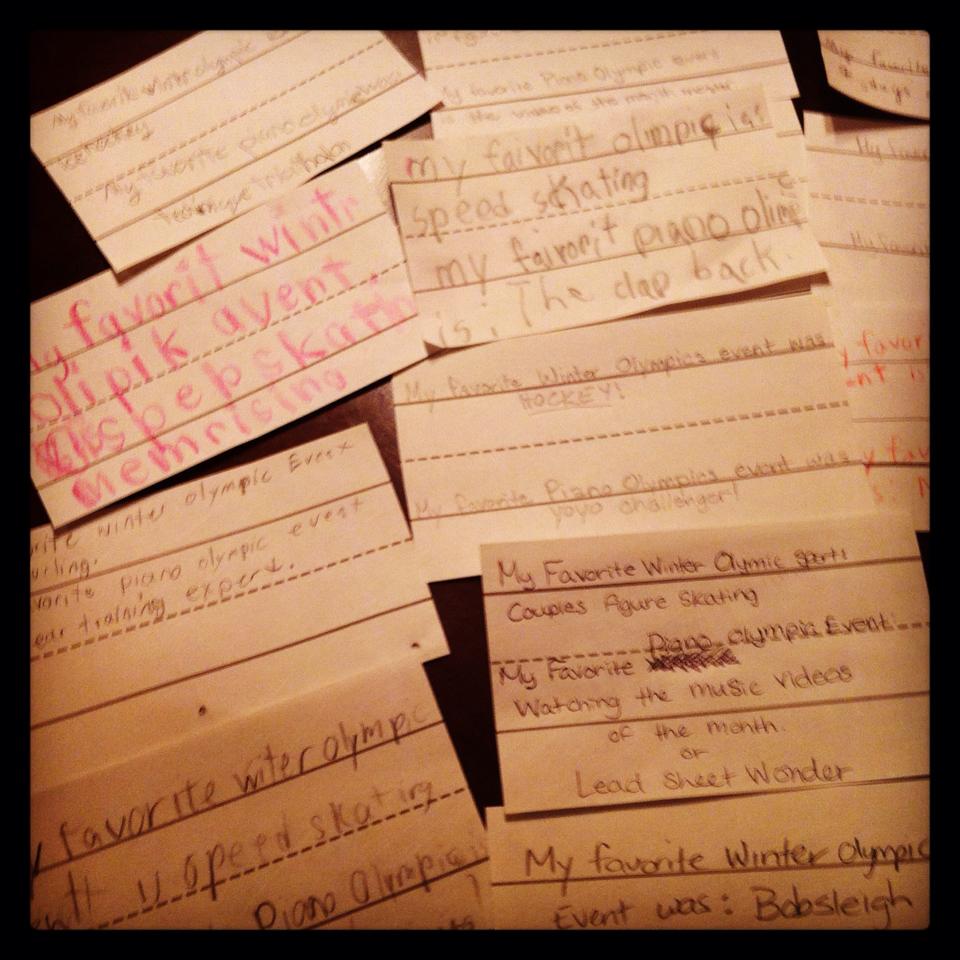 My favorite winter olympic
icehockey
My favorite piano olympic
technique triathalon
My favorite Piano Olympic event
is the video of the month
My favorite
my faivorit olimpic is:
speed skating
my faivorit piano olimc
is: The clap back.
favorit wintr
olipik avent.
spepskat
memrising
My Favorite Winter Olympics event was
HOCKEY!
My Favorite Piano Olympics event was
yoyo challenger!
My favo
My favo
y favor
ent is
y fav
s:
rite winter olympic Event
urling.
vorite piano olympic event
ear training expert.
My Favorite Winter Olymic sport:
Couples figure skating
My Favorite Piano Olympic Event:
Watching the music videos
of the month.
or
Lead Sheet Wonder
y favorite witer olympic
speed skating
Piano Olympic
My favorite Winter Olympic
Event was: Bobsleigh